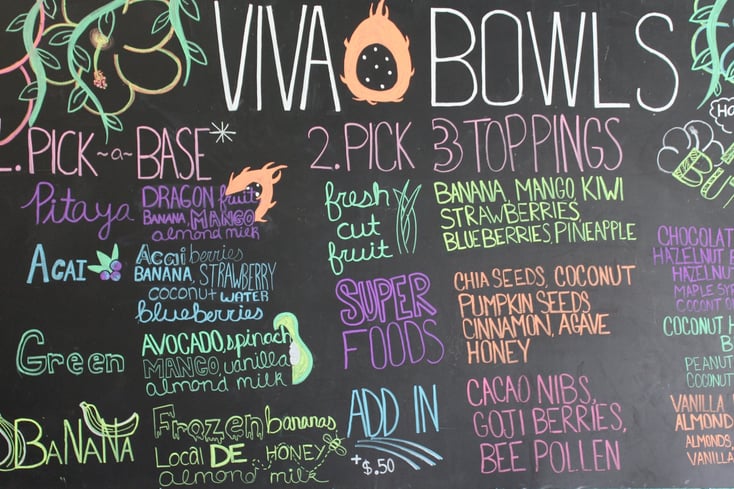 VIVA BOWLS
1. PICK-a-BASE*
Pitaya
DRAGON fruit
BANANA, MANGO
almond milk
ACAI
Acai berries
BANANA, STRAWBERRY
coconut WATER
blueberries
Green
AVOCADO, spinach
MANGO, vanilla
almond milk
BANANA
Frozen bananas
Local DE HONEY
almond milk
2. PICK 3 TOPPINGS
fresh
cut
fruit
BANANA, MANGO, KIWI
STRAWBERRIES
BLUEBERRIES, PINEAPPLE
SUPER
FOODS
CHIA SEEDS, COCONUT
PUMPKIN SEEDS
CINNAMON, AGAVE
HONEY
ADD IN
+$.50
CACAO NIBS,
GOJI BERRIES,
BEE POLLEN
HAZELNUT
HAZELNUT
MAPLE
COCONUT
COCONUT
VANILLA
ALMOND
ALMONDS,
VANILLA